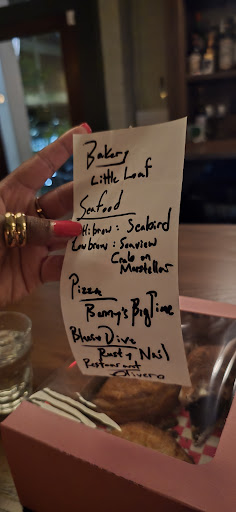 Bakery
Little Loaf
Seafood
Hibrow: Seabird
Lowbrow: Seaview
Crab on
Marstellar
Pizza
Benny's Big Time
Blues Dive
Rusty Nail
Restaurant
Olivero